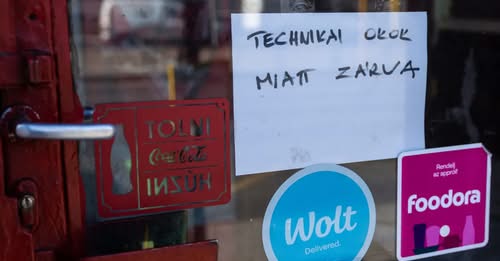 TECHNIKAI OKOK
MIATT ZÁRVA
TOLNI
Coca-Cola
HÚZNI
Wolt
Delivered.
Rendelj
az appról!
foodora